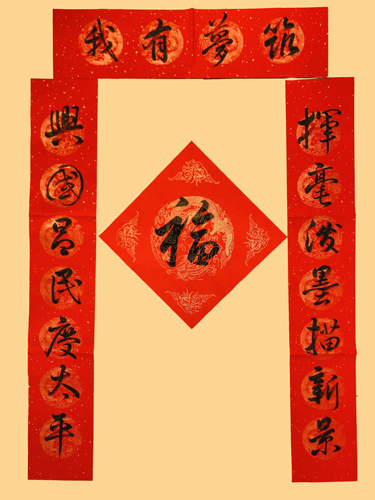 筑夢有我
揮毫泼墨描新景
興國昌民慶太平
福